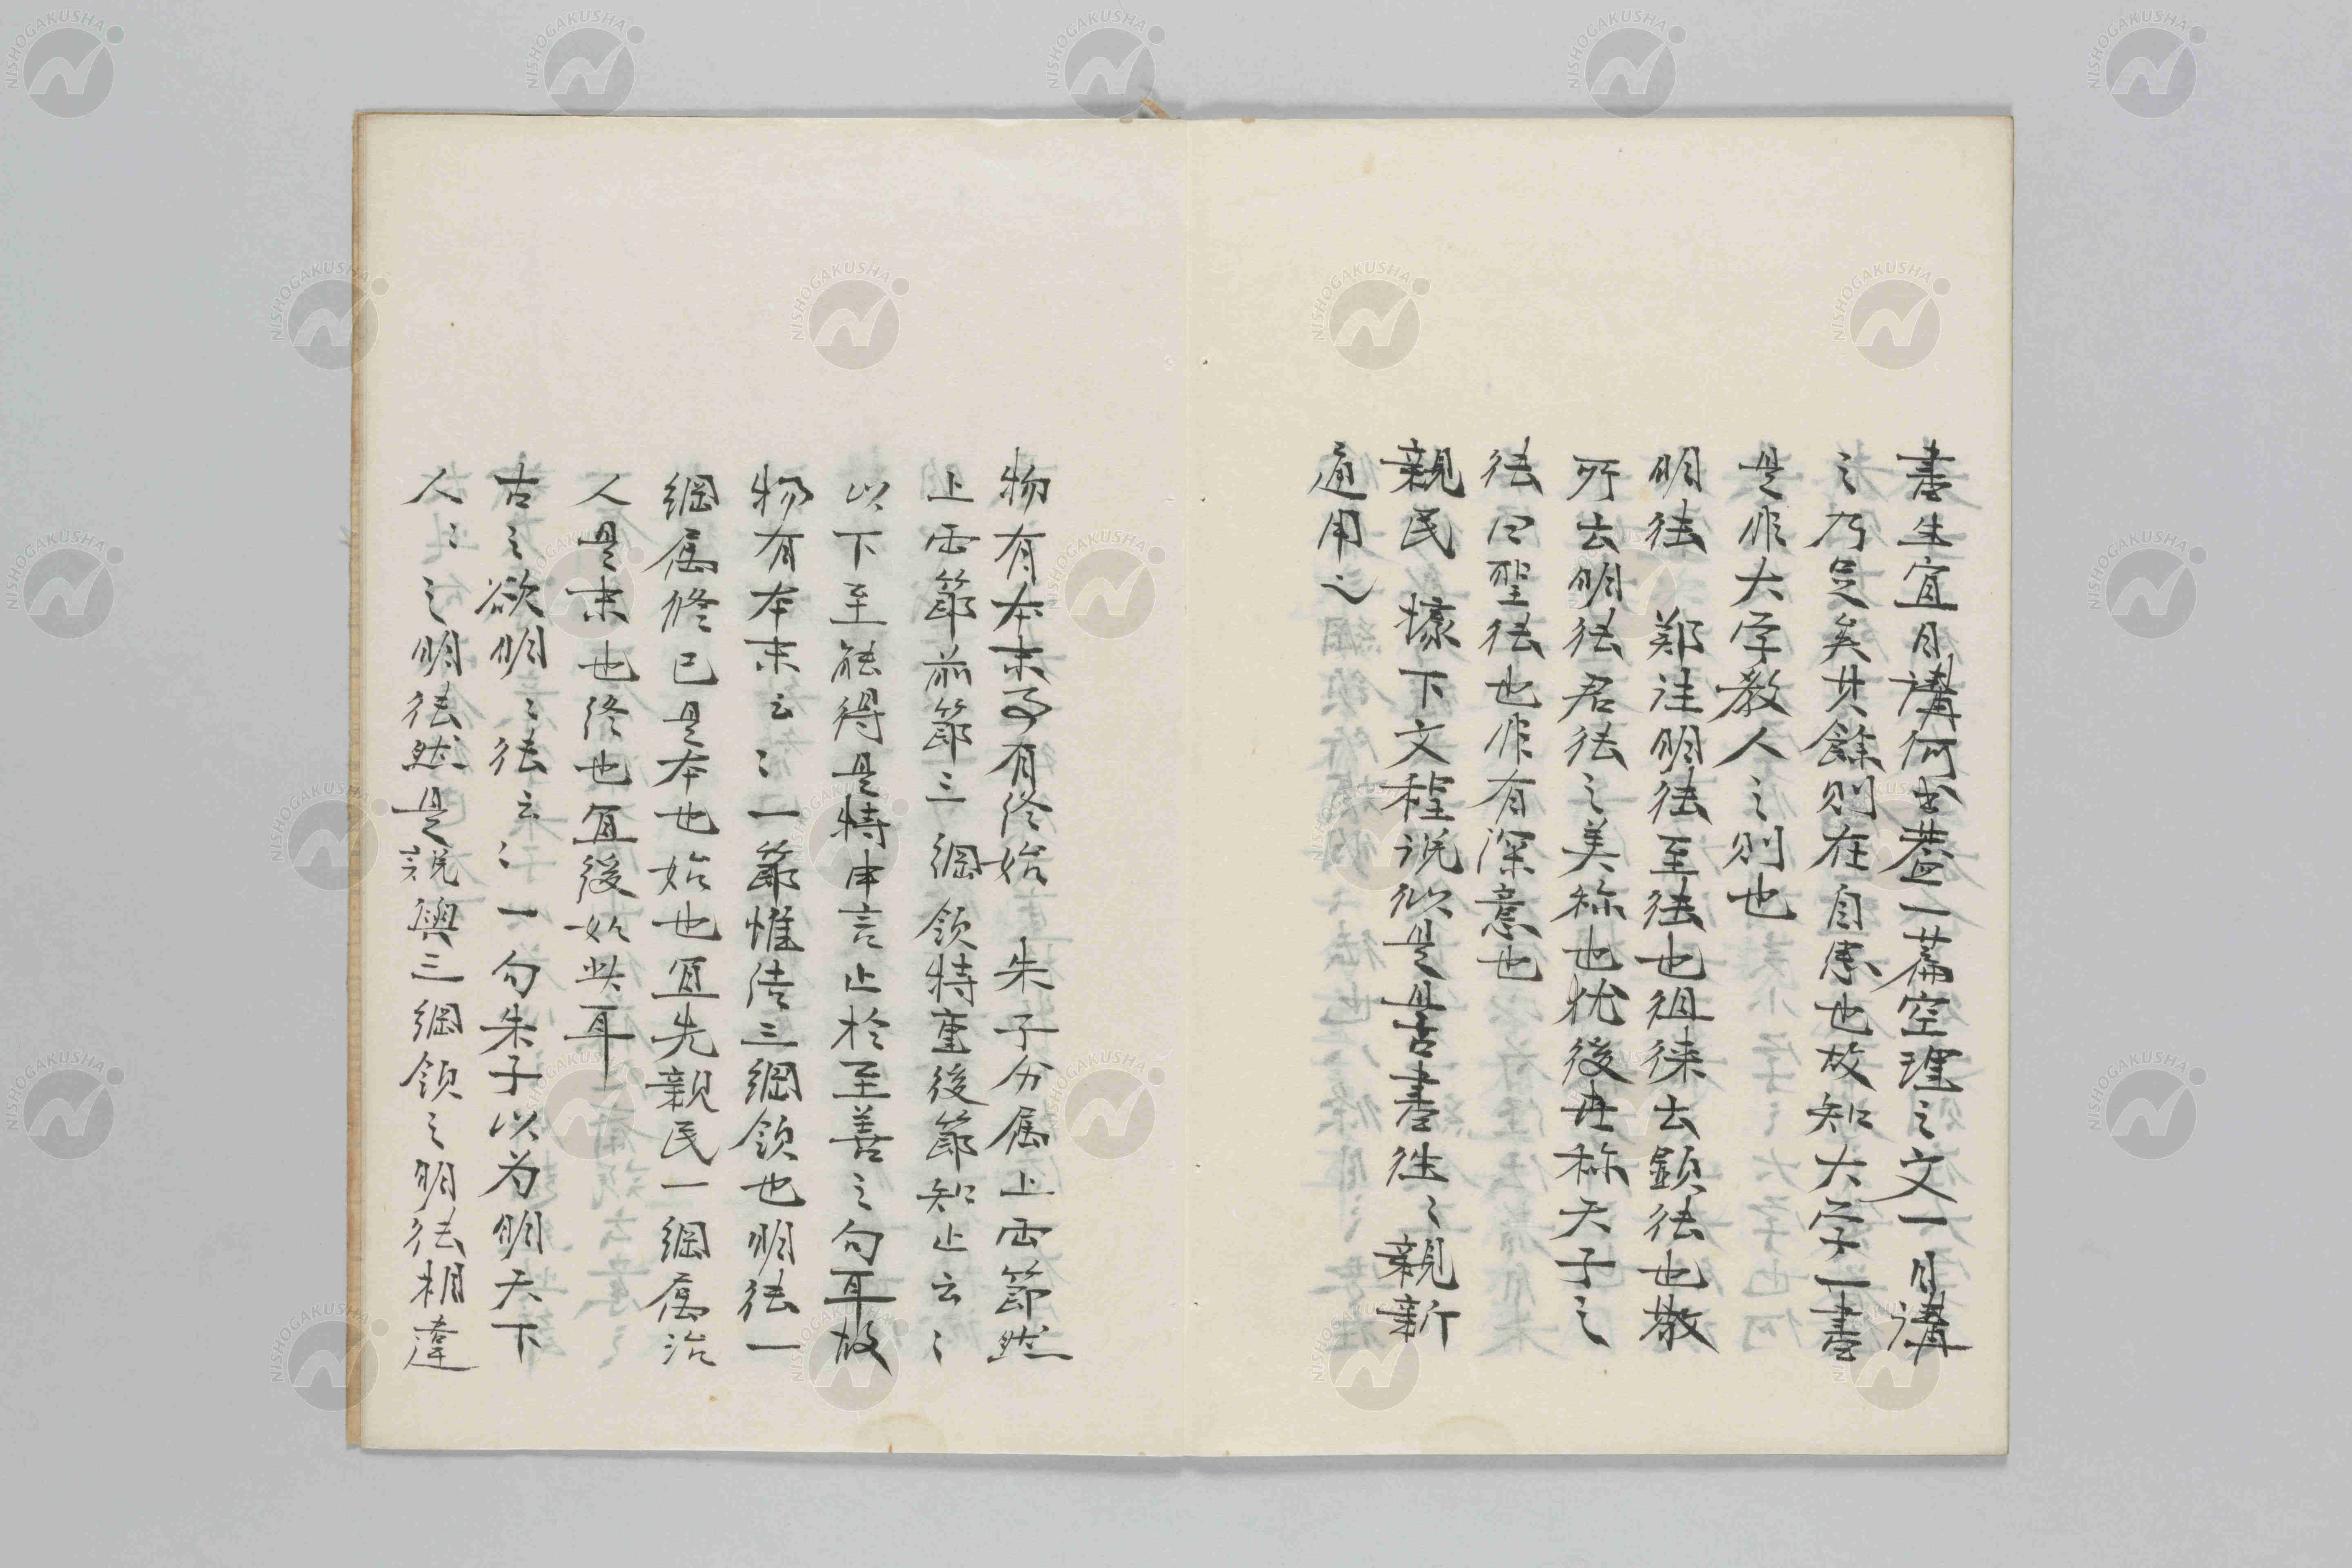 書生宜日講何書蓋一篇空理之文一日講
之乃足矣其餘則在自患也故知大学一書
是非大学教人之則也
明徳　鄭注明徳至徳也徂徠云顕徳也敬
所云明徳君徳之美称也犹後世称天子之
徳曰聖徳也非有深意也
親民　據下文程説似是且古書往〻親新
通用之
物有本末事有終始　朱子分属上両節然
上両節前節三綱領特重後節知止云〻
以下至能得是特申言止於至善之句耳故
物有本末云〻一節惟結三綱領也明徳一
綱属修己是本也始也宜先親民一綱属治
人是末也終也宜後如此耳
古之欲明〻徳云〻一句朱子以为明天下
人〻之明徳然是説與三綱領之明徳相違
NISHOGAKUSHA